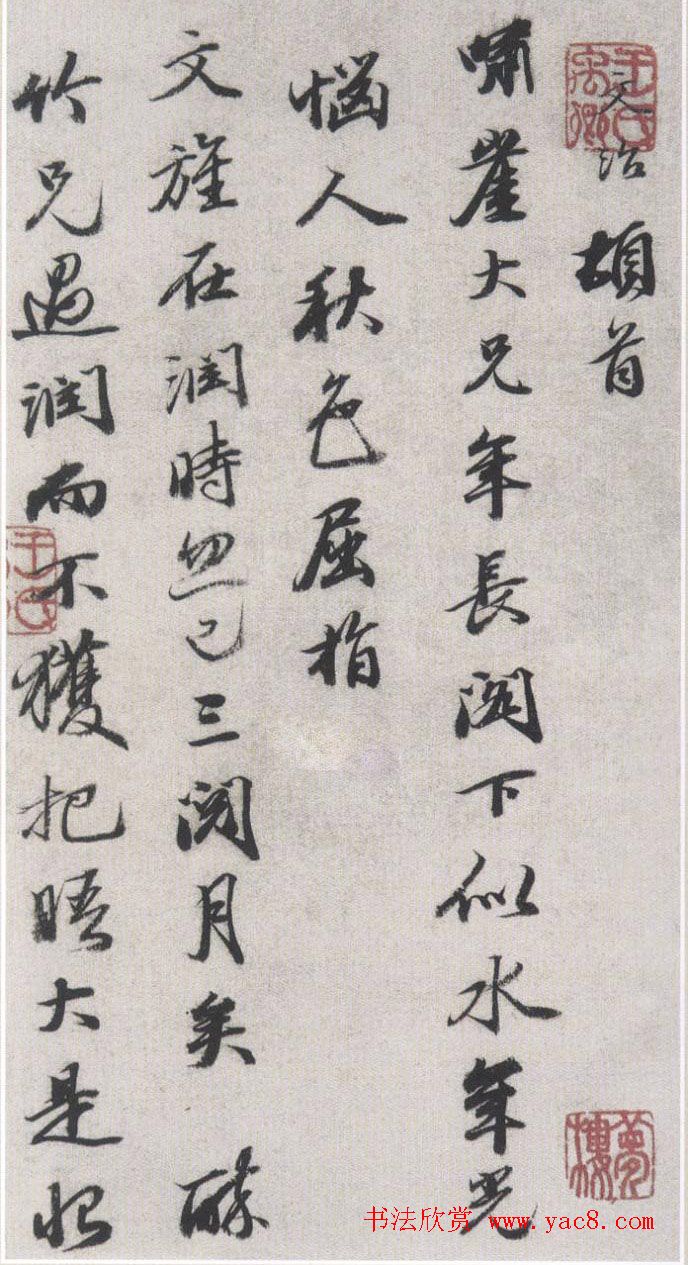 文治頓首
啸崖大兄年長閣下似水年光
惱人秋色屈指
文旌在潤時忽已三閱月矣 醉
竹兄過潤而不獲把晤大是悵
王氏禹卿
夢樓
王氏
书法欣赏 www.yac8.com